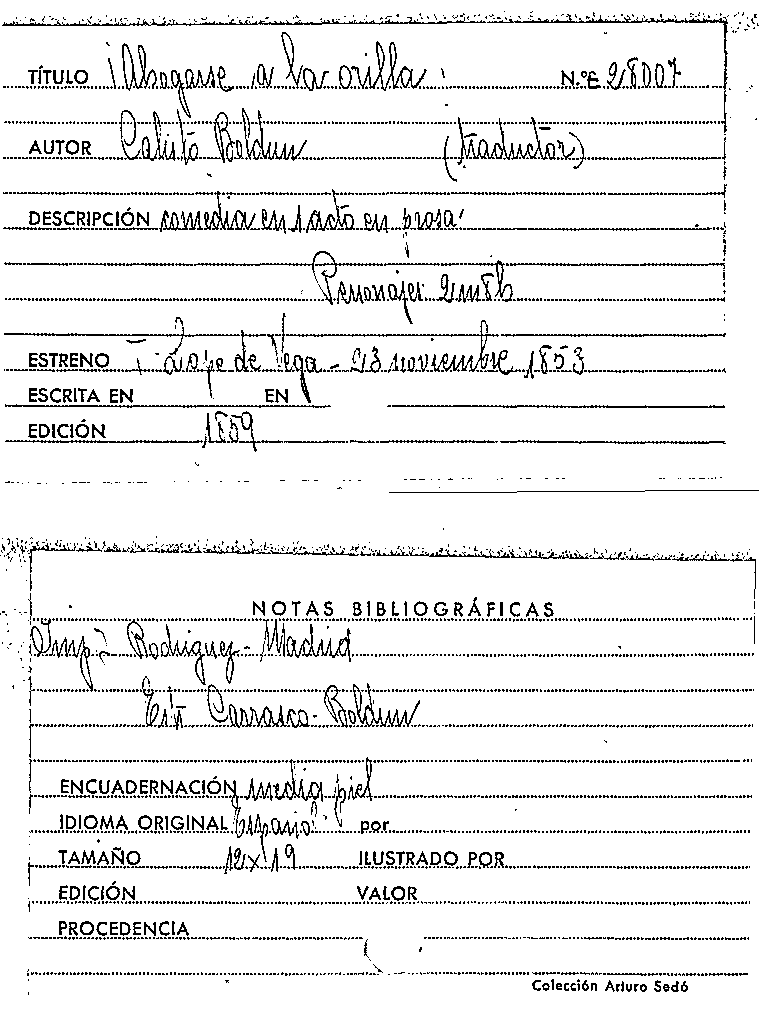 TÍTULO ¡Ahogarse a la orilla! N.ºE 28007
AUTOR Calisto Boldun (traductor)
DESCRIPCIÓN comedia en 1 acto en prosa
Personajes 2m 8h
ESTRENO T. Lope de Vega - 23 noviembre 1853
ESCRITA EN EN
EDICIÓN 1859
NOTAS BIBLIOGRÁFICAS
Rodriguez - Madrid
Carrasco - Boldun
ENCUADERNACIÓN media piel
IDIOMA ORIGINAL Español por
TAMAÑO 12x19 ILUSTRADO POR
EDICIÓN VALOR
PROCEDENCIA
Colección Arturo Sedó